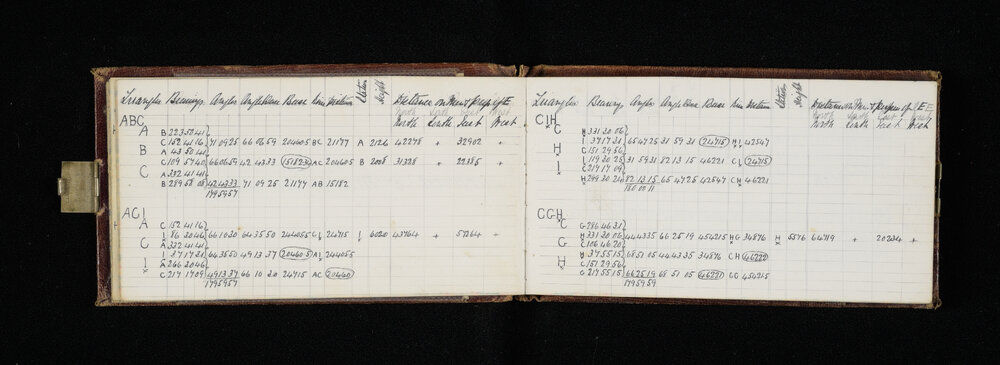 Triangles Bearings Angles Angle Base Base Station Height Distance on Mer. & Perp. of
North South East West
ABC
A B 223 50 41
C 152 41 16 71 09 25 66 06 59 20460 5 BC 21177 A 2126 42278 + 32902 +
B A 43 50 41
C 109 57 40 66 06 59 42 43 33 15182 AC 20460 5 B 2008 31328 + 22385 +
C A 332 41 41
B 289 58 08 42 43 33 71 09 25 21177 AB 15182
179 59 57
ACI
A C 152 41 16
I 86 30 46 66 10 30 64 35 50 24405 5 CI 24715 I 6020 43764 + 57364 +
C A 332 41 41
I 37 17 31 64 35 50 49 13 37 20460 5 AI 24405 5
I A 266 30 46
C 217 17 09 49 13 37 66 10 30 24715 AC 20460
179 59 57
Triangles Bearing Angles Angle Base Base Station Height
North South East West
CIH
C H 331 30 06
I 37 17 31 65 47 25 31 59 31 24715 HI 42547
H C 151 29 56
I 119 30 25 31 59 31 82 13 15 46221 CI 24715
I C 217 17 09
H 299 30 24 82 13 15 65 47 25 42547 CH 46221
180 00 11
CGH
C G 286 46 31
H 331 30 06 44 43 35 66 25 19 45421 5 HG 34876 H 5576 64719 + 20234 +
G C 106 46 20
H 37 55 15 68 51 05 44 43 35 34876 CH 46221
H C 151 29 56
G 217 55 15 66 25 19 68 51 05 46221 CG 45421 5
179 59 59